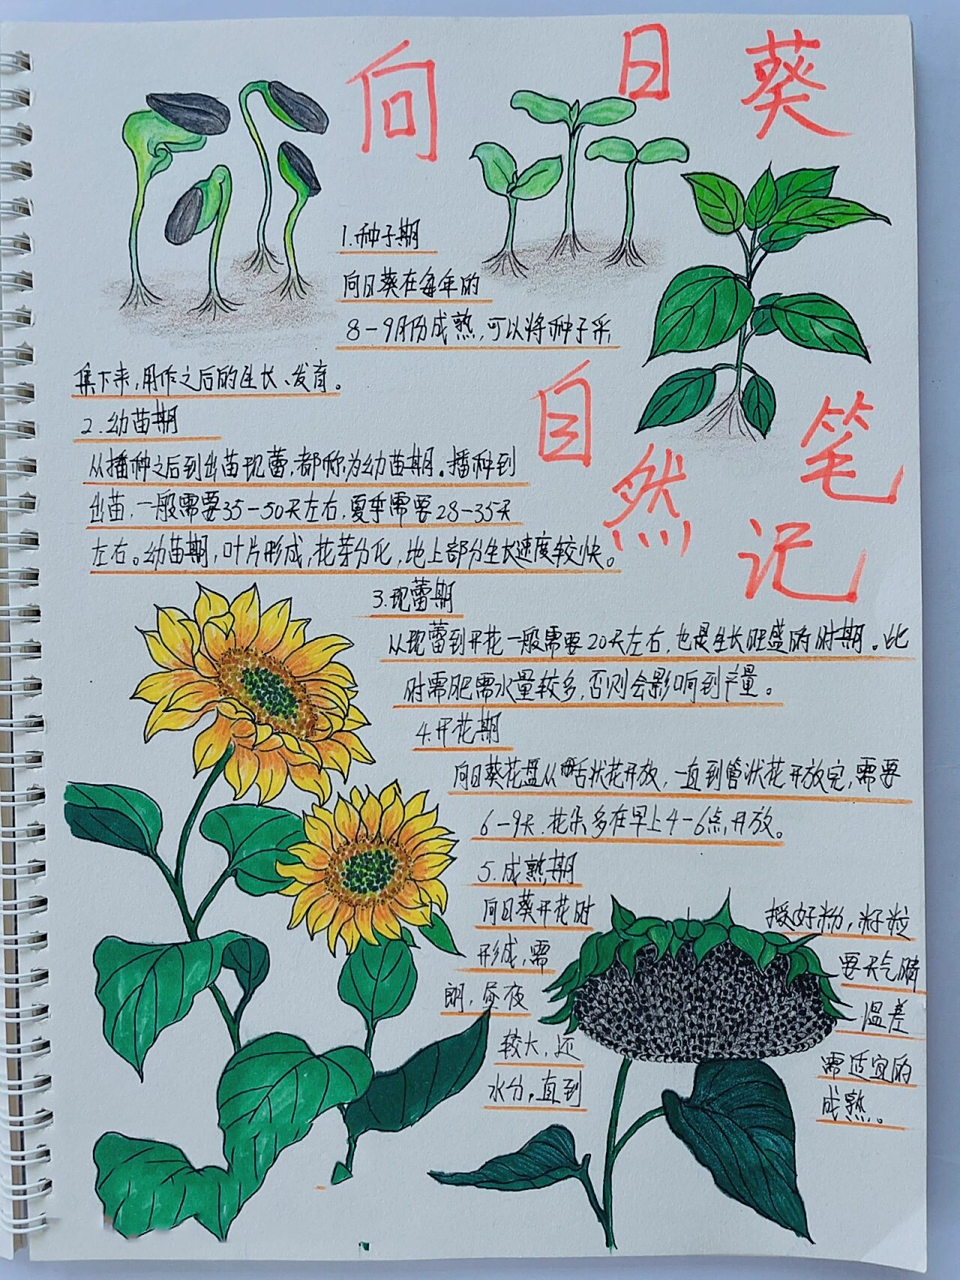 向日葵
自然笔记
1.种子期
向日葵在每年的
8-9月份成熟,可以将种子采
集下来,用作之后的生长、发育。
2.幼苗期
从播种之后到出苗现蕾,都称为幼苗期。播种到
出苗,一般需要35-50天左右,夏季需要28-35天
左右。幼苗期,叶片形成,花芽分化,地上部分生长速度较快。
3.现蕾期
从现蕾到开花一般需要20天左右,也是生长旺盛的时期。此
时需肥需水量较多,否则会影响到产量。
4.开花期
向日葵花盘从舌状花开放,一直到管状花开放完,需要
6-9天.花朵多在早上4-6点,开放。
5.成熟期
向日葵开花时 授好粉,籽粒
形成,需 要天气晴
朗,昼夜 温差
较大,还 需适宜的
水分,直到 成熟。